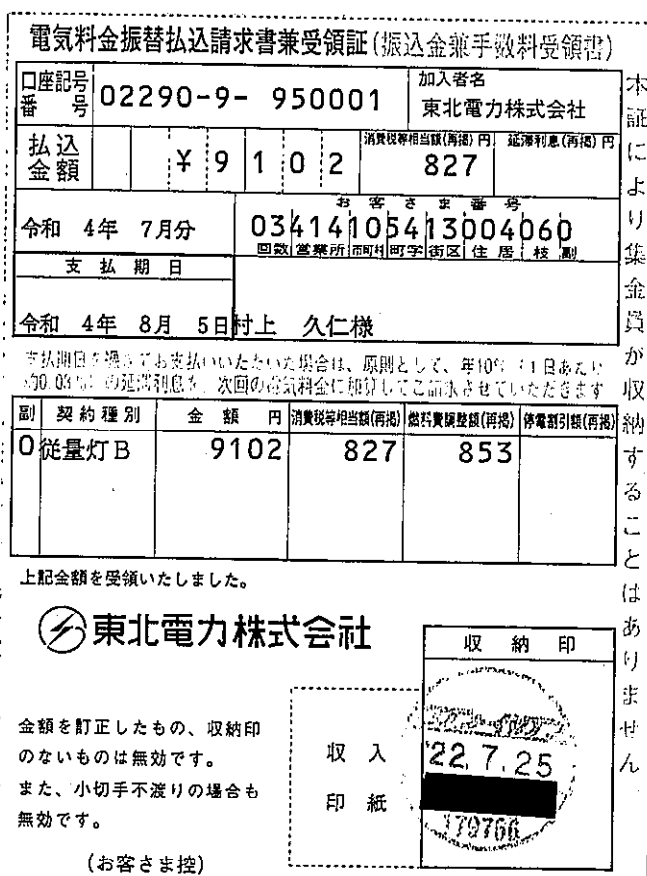 電気料金振替払込請求書兼受領証(振込金兼手数料受領書)
口座記号番号 02290-9- 950001 加入者名 東北電力株式会社
払込金額 ¥9102 消費税等相当額(再掲) 円 827 延滞利息(再掲) 円
令和 4年 7月分 お客さま番号 03414105413004060
回数 営業所 市町村 町字 街区 住居 枝 副
支払期日
令和 4年 8月 5日 村上 久仁様
支払期日を過ぎてお支払いいただいた場合は、原則として、年10%(1日あたり
約0.03%)の延滞利息を、次回の電気料金に加算してご請求させていただきます
副 契約種別 金額 円 消費税等相当額(再掲) 燃料費調整額(再掲) 停電割引額(再掲)
0 従量灯B 9102 827 853
上記金額を受領いたしました。
東北電力株式会社
収納印
金額を訂正したもの、収納印
のないものは無効です。
また、小切手不渡りの場合も
無効です。
(お客さま控)
収入
印紙
22.7.25
179766
本証により集金員が収納することはありません